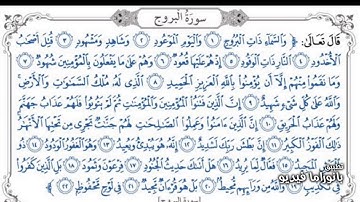 سورة البروج
قَالَ تَعَالَى: ﴿ وَالسَّمَاءِ ذَاتِ الْبُرُوجِ ١ وَالْيَوْمِ الْمَوْعُودِ ٢ وَشَاهِدٍ وَمَشْهُودٍ ٣ قُتِلَ أَصْحَابُ
الْأُخْدُودِ ٤ النَّارِ ذَاتِ الْوَقُودِ ٥ إِذْ هُمْ عَلَيْهَا قُعُودٌ ٦ وَهُمْ عَلَى مَا يَفْعَلُونَ بِالْمُؤْمِنِينَ شُهُودٌ ٧
وَمَا نَقَمُوا مِنْهُمْ إِلَّا أَن يُؤْمِنُوا بِاللَّهِ الْعَزِيزِ الْحَمِيدِ ٨ الَّذِي لَهُ مُلْكُ السَّمَاوَاتِ وَالْأَرْضِ
وَاللَّهُ عَلَى كُلِّ شَيْءٍ شَهِيدٌ ٩ إِنَّ الَّذِينَ فَتَنُوا الْمُؤْمِنِينَ وَالْمُؤْمِنَاتِ ثُمَّ لَمْ يَتُوبُوا فَلَهُمْ عَذَابُ جَهَنَّمَ
وَلَهُمْ عَذَابُ الْحَرِيقِ ١٠ إِنَّ الَّذِينَ آمَنُوا وَعَمِلُوا الصَّالِحَاتِ لَهُمْ جَنَّاتٌ تَجْرِي مِن تَحْتِهَا
الْأَنْهَارُ ذَلِكَ الْفَوْزُ الْكَبِيرُ ١١ إِنَّ بَطْشَ رَبِّكَ لَشَدِيدٌ ١٢ إِنَّهُ هُوَ يُبْدِئُ وَيُعِيدُ ١٣ وَهُوَ الْغَفُورُ الْوَدُودُ ١٤ ذُو الْعَرْشِ
الْمَجِيدُ ١٥ فَعَّالٌ لِّمَا يُرِيدُ ١٦ هَلْ أَتَاكَ حَدِيثُ الْجُنُودِ ١٧ فِرْعَوْنَ وَثَمُودَ ١٨ بَلِ الَّذِينَ كَفَرُوا
فِي تَكْذِيبٍ ١٩ وَاللَّهُ مِن وَرَائِهِم مُّحِيطٌ ٢٠ بَلْ هُوَ قُرْآنٌ مَّجِيدٌ ٢١ فِي لَوْحٍ مَّحْفُوظٍ ٢٢ ﴾
[سورة البروج]
تطبيق
بانوراما فيديو